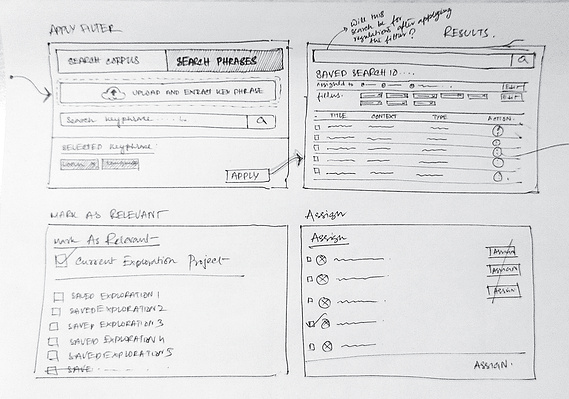 APPLY FILTER
SEARCH CORPUS
SEARCH PHRASES
UPLOAD AND EXTRACT KEY PHRASE
Search keyphrase
SELECTED Keyphrase:
APPLY
Will this
search be for
regulations after applying
the filter?
RESULTS.
SAVED SEARCH 10...
assigned to
Edit
filters:
Edit
TITLE
CONTEXT
TYPE
ACTION
MARK AS RELEVANT
Mark As Relevant
Current Exploration Project
SAVED EXPLORATION 1
SAVED EXPLORATION 2
SAVED EXPLORATION 3
SAVED EXPLORATION 4
SAVED EXPLORATION 5
SAVE
Assign
Assign
Assign
Assign
Assign
ASSIGN.